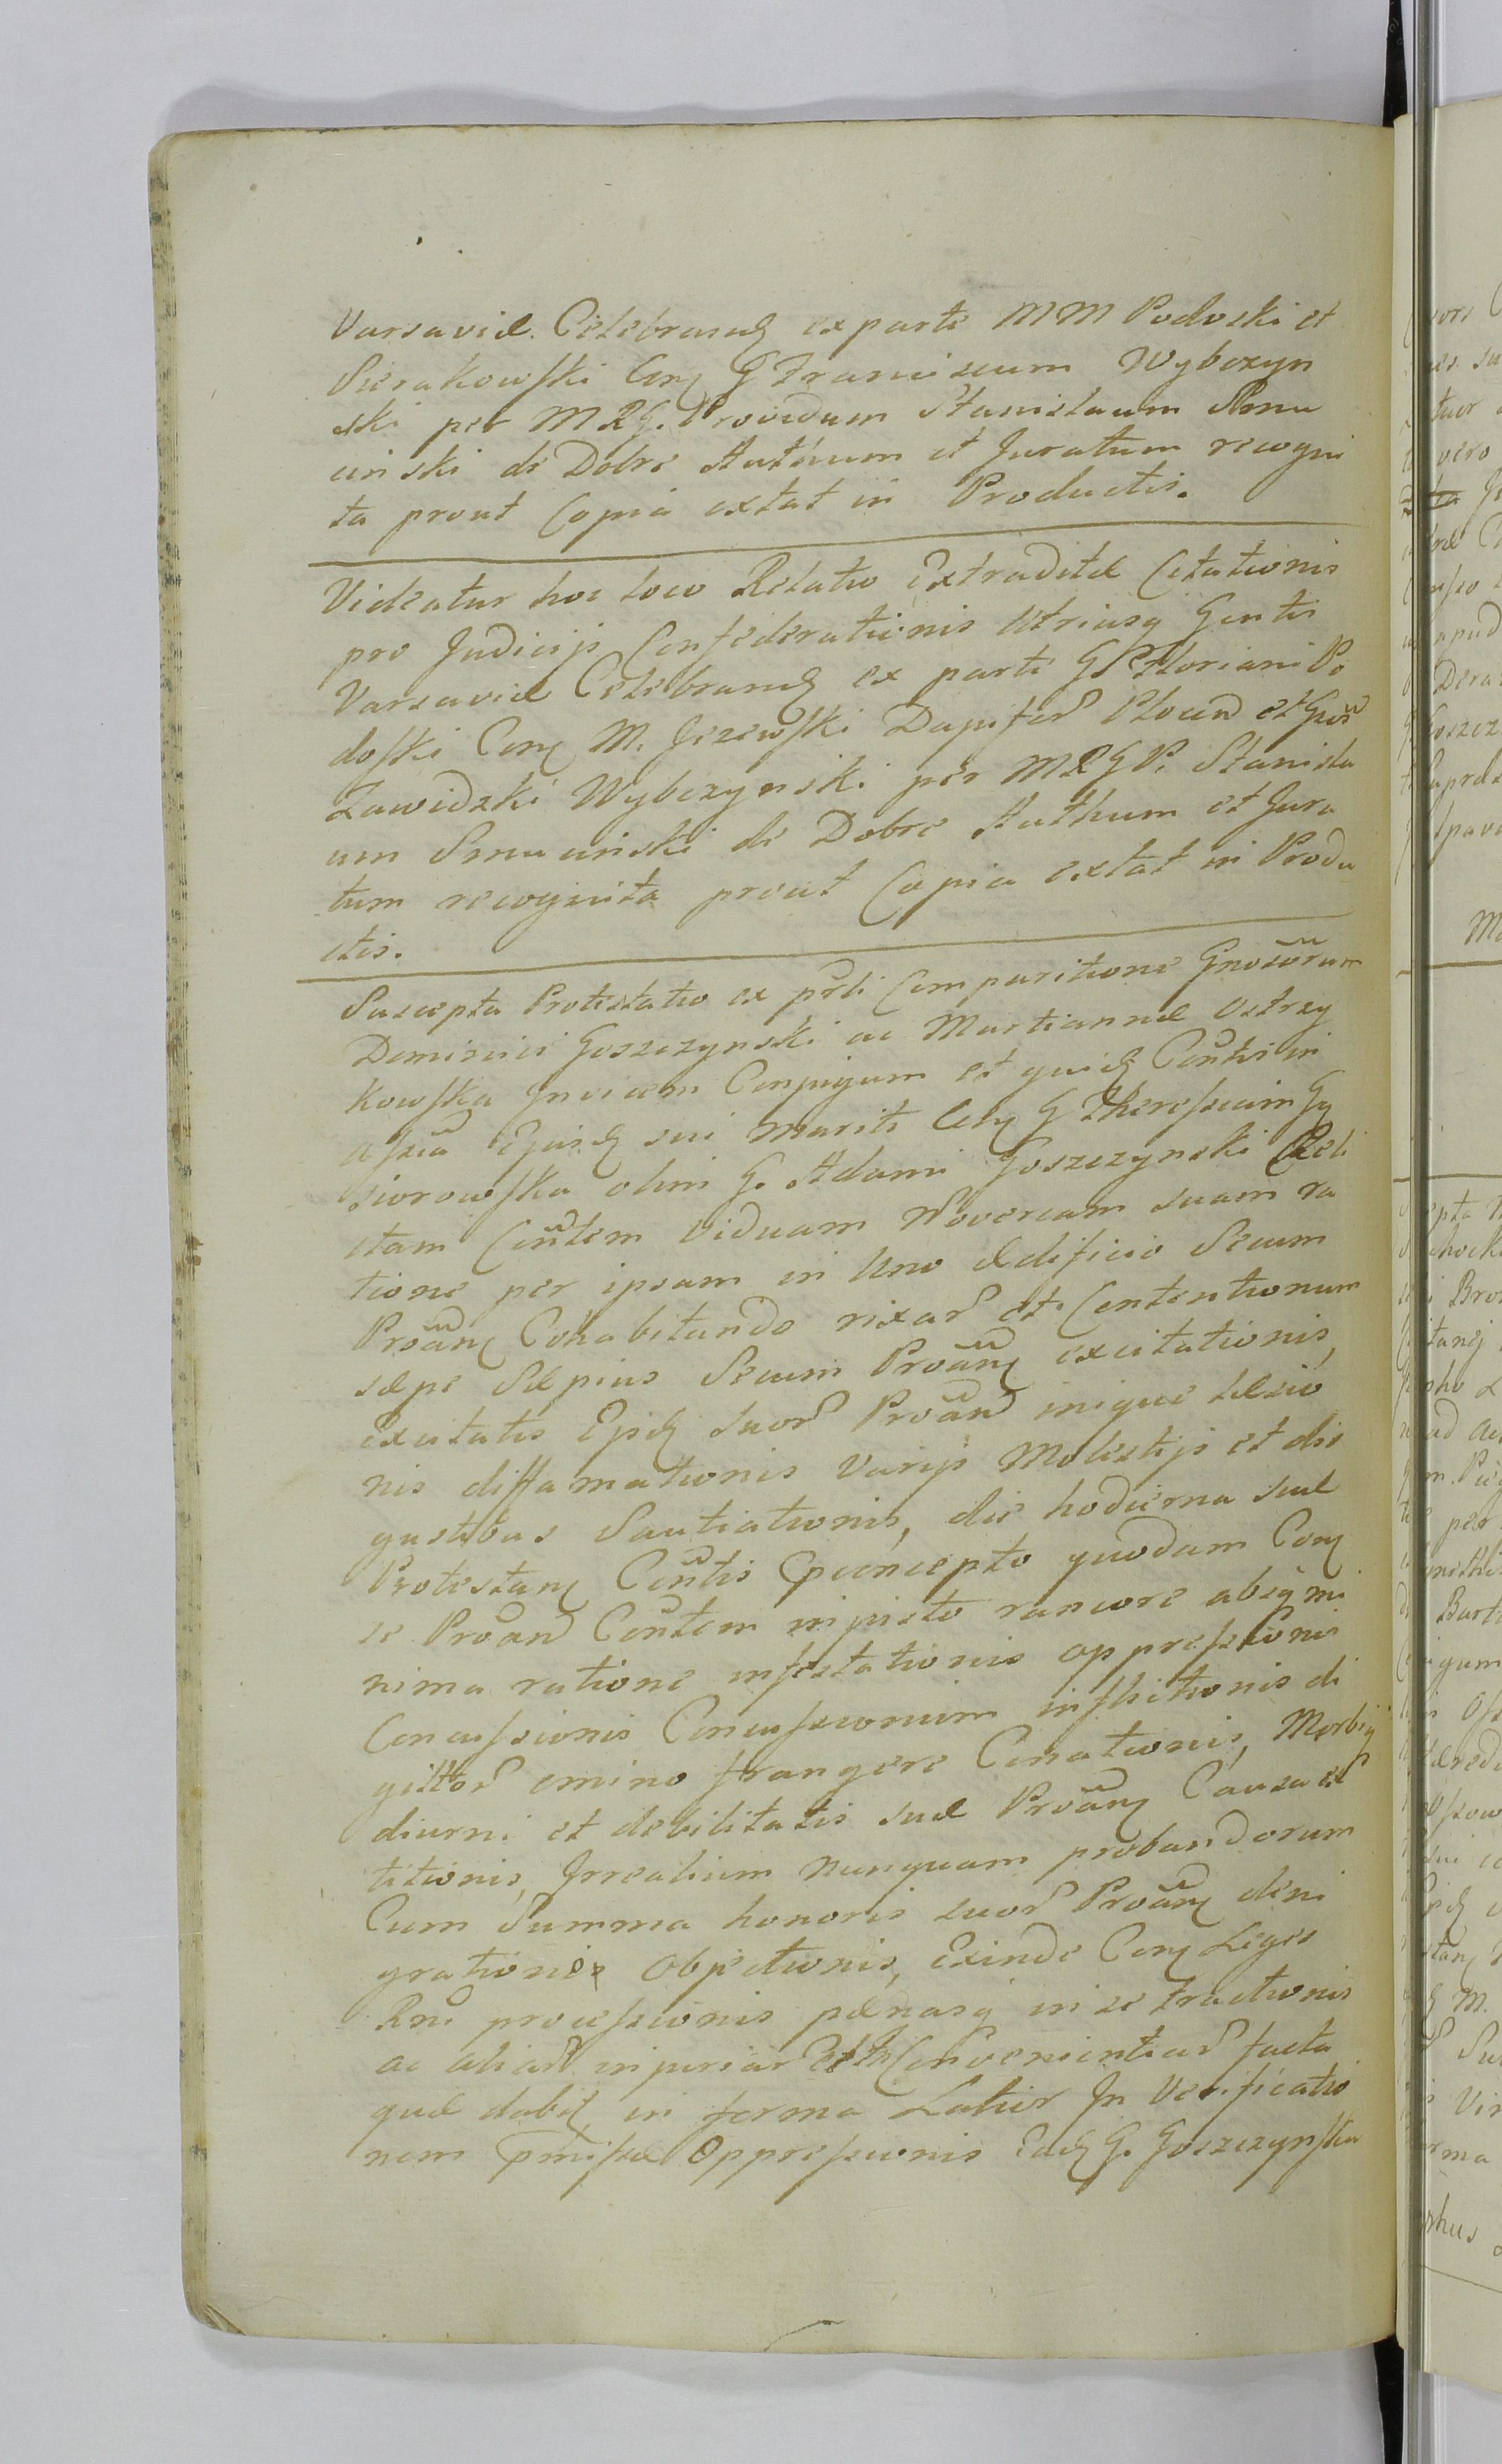 Varsaviæ. Celebrandꝫ ex parte MM Podoski et
Sierakowski Conꝫ G Franciscum Wybczyn
ski per MRG. Providum Stanislaum Smu
cinski de Dobre Authum et Juratum recogni
ta prout Copia extat in Productis.
Videatur hoc loco Relatio Extraditæ Citationis
pro Judicijs Confederationis Utriusq Gentis
Varsaviæ Celebrandꝫ ex parte G Floriani Po
doski Conꝫ M. Jezewski Dapifer Plocen et
Zawidzki Wybczynski per MRGP. Stanisla
um Smucinski de Dobre Authum et Jura
tum recognita prout Copia extat in Produ
ctis.
Suscepta Protestatio ex prli Comparitione Gnosorum
Dominici Goszczynski ac Martiannæ Ostrzy
kowska Invicem Conjugum et quidꝫ Contis in
assia Ejusdꝫ sui Mariti Conꝫ G Theressiam Gą
siorowska olim G. Adami Goszczynski Reli
ctam Contem Viduam Novercam suam ra
tione per ipsam in Uno ædificio Secum
Proanꝫ Cohabitando rixar et Contentionum
sæpe Sæpius Secum Proanꝫ excitationis,
excitatis Epidꝫ Suor Proan inique læsio
nis diffamationis Varijs Molestijs et dis
gustibus Sautiationis, die hodierna suæ
Protestanꝫ Contis concepto quodam Conꝫ
se Proan Contem injusto rancore absq mi
nima ratione infestationis oppressionis
Concussionis Concussionum inflictionis di
gittor omino frangere Conationis, Morbiq
diurni et debilitatis suæ Proanꝫ Causa et
titionis, Irrealium nunquam probandorum
Cum Summa honoris suor Proanꝫ deni
grationis objectionis, Exinde Conꝫ Leges
Rni processionis pænasq in se tractionis
ac aliar injuriar et Convenientiar facta
quæ dabit in forma Latior In Verificatio
nem pmissæ Oppressionis Eadꝫ G. Goszczynska